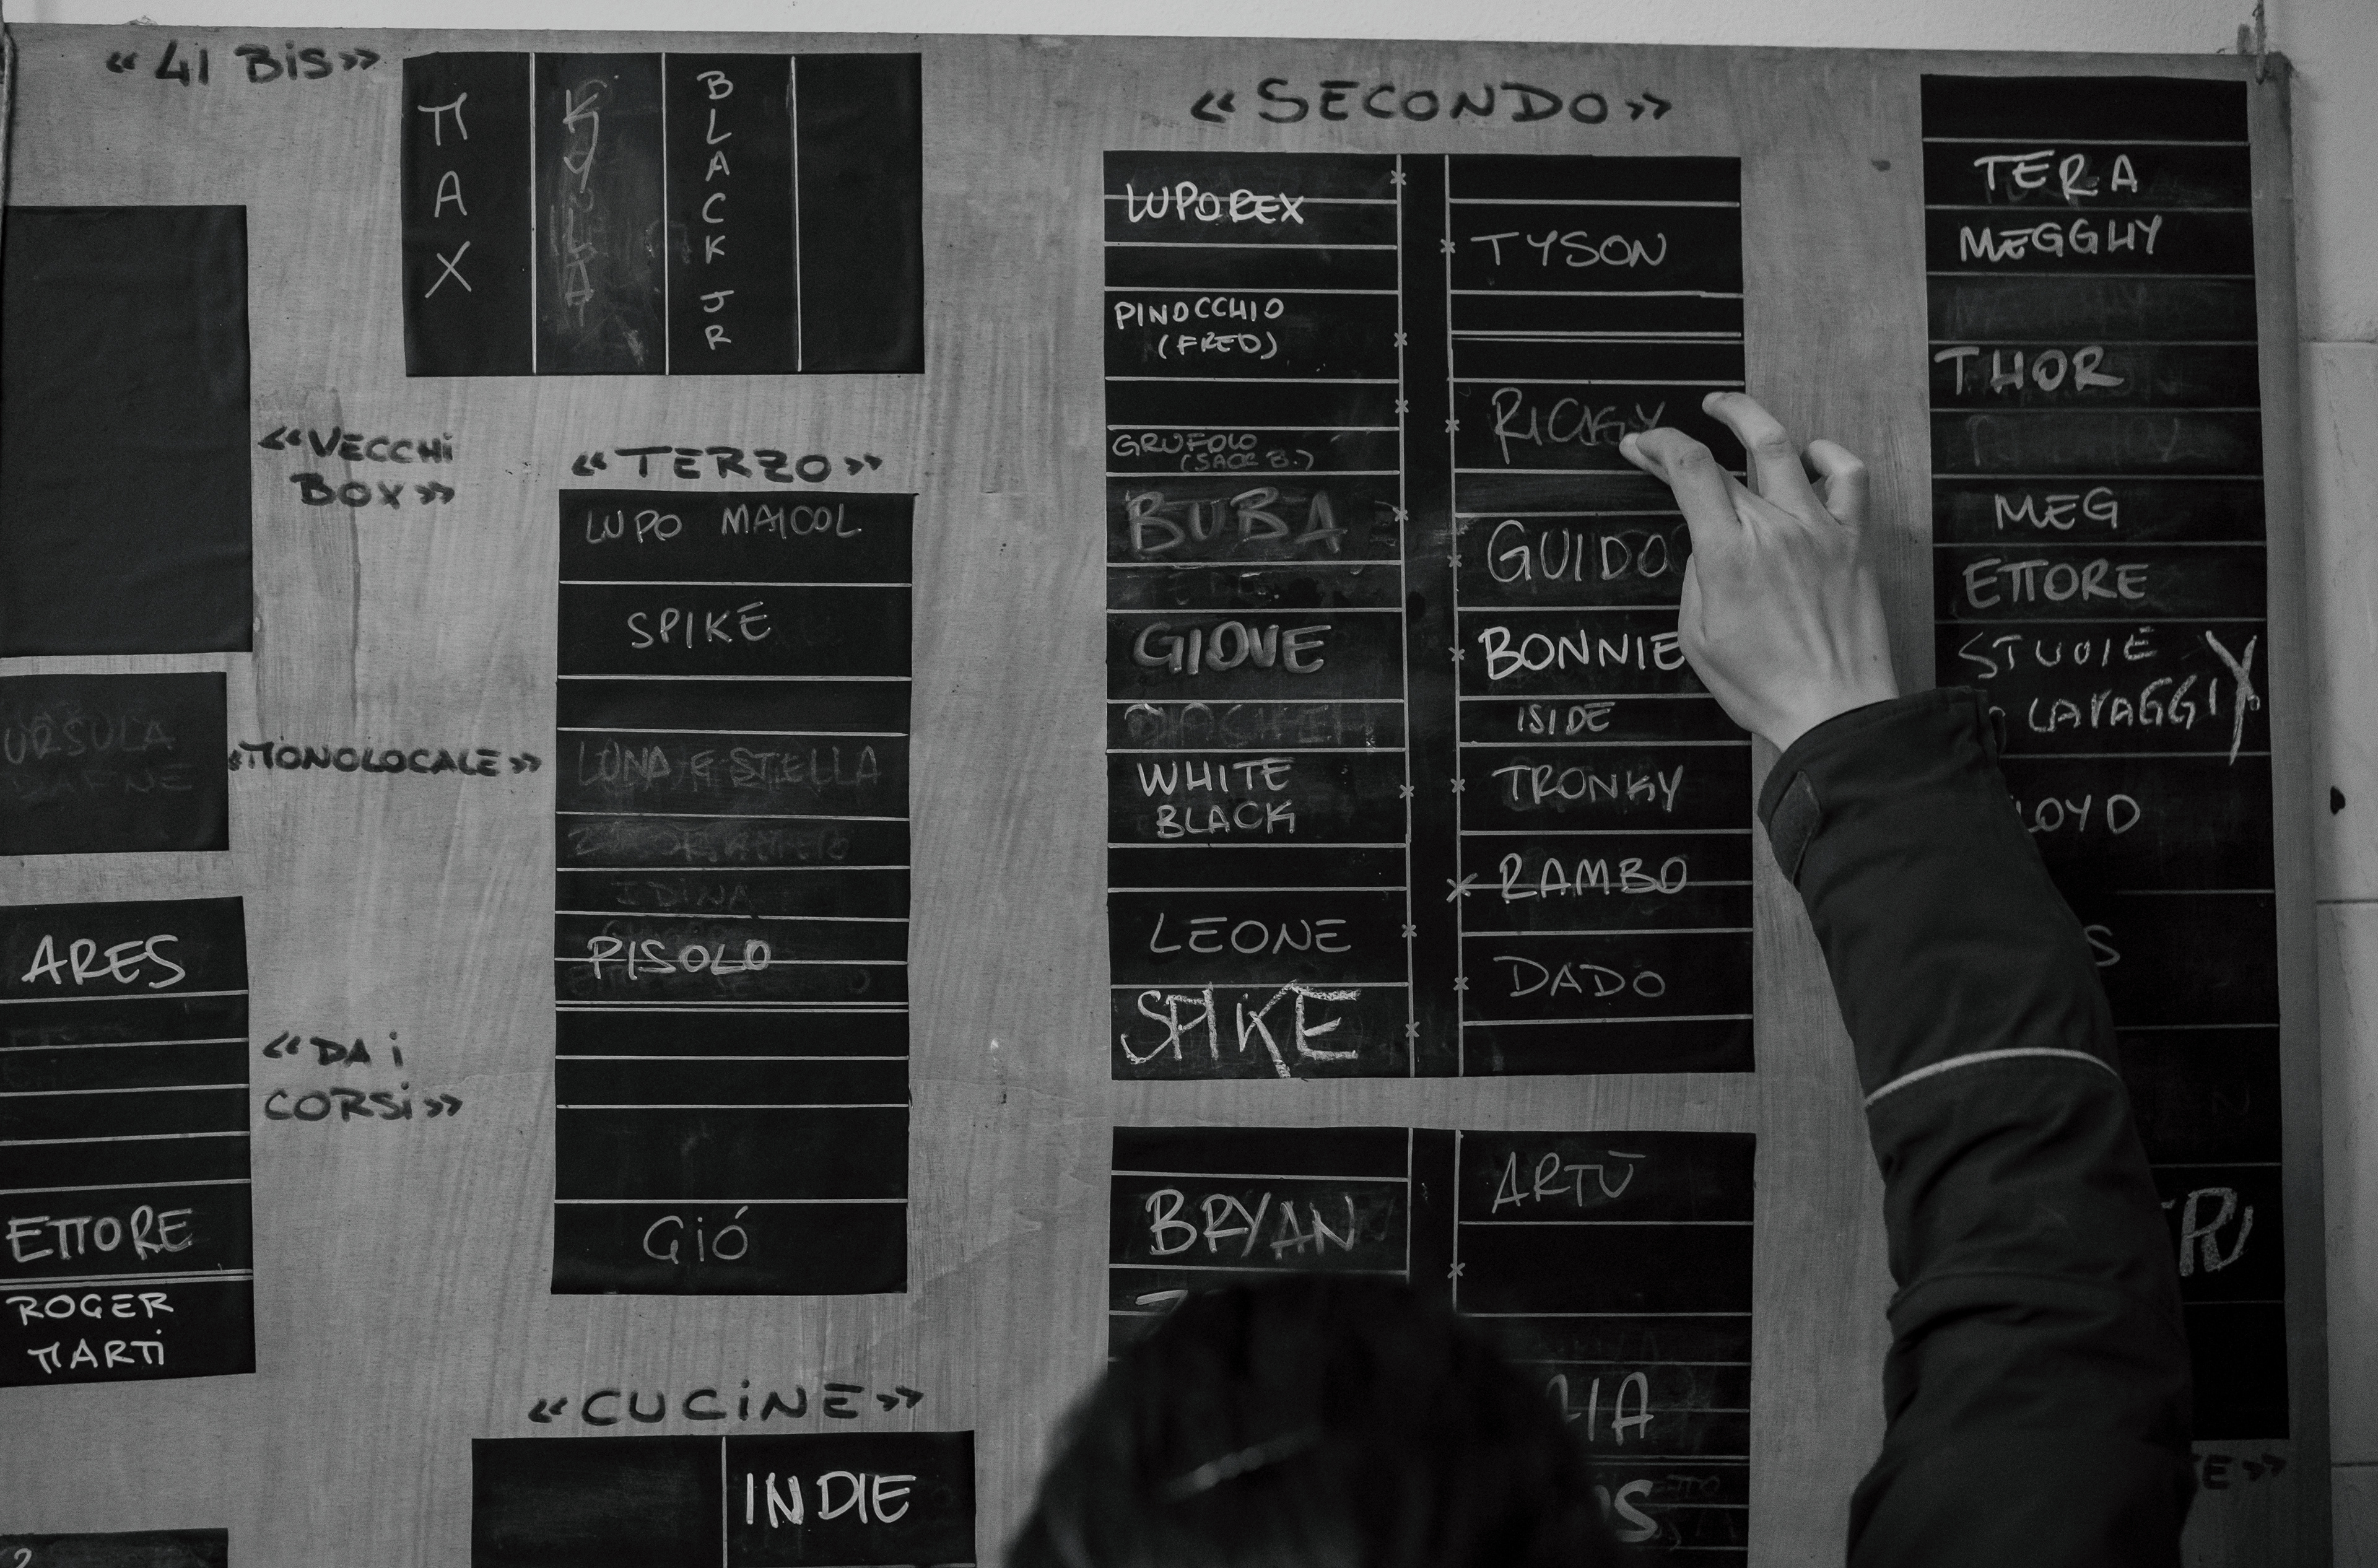 «41 BiS»
MAX
BLACK JR
«VECCHi
BOX»
URSULA
«MONOLOCALE»
ARES
«DA i
CORSi»
ETTORE
ROGER
MARTi
«TERZO»
LUPO MAICOL
SPIKE
LUNA E STELLA
PISOLO
GiÓ
«CUCiNE»
INDIE
«SECONDO»
LUPOREX
PINOCCHIO
(FRED)
GRUFOLO
BUBA
GIOVE
WHITE
BLACK
LEONE
SPIKE
TYSON
RICKY
GUIDO
BONNIE
ISIDE
TRONKY
RAMBO
DADO
BRYAN
ARTÙ
TERA
MEGGHY
THOR
MEG
ETTORE
STUOIE
LAVAGGI